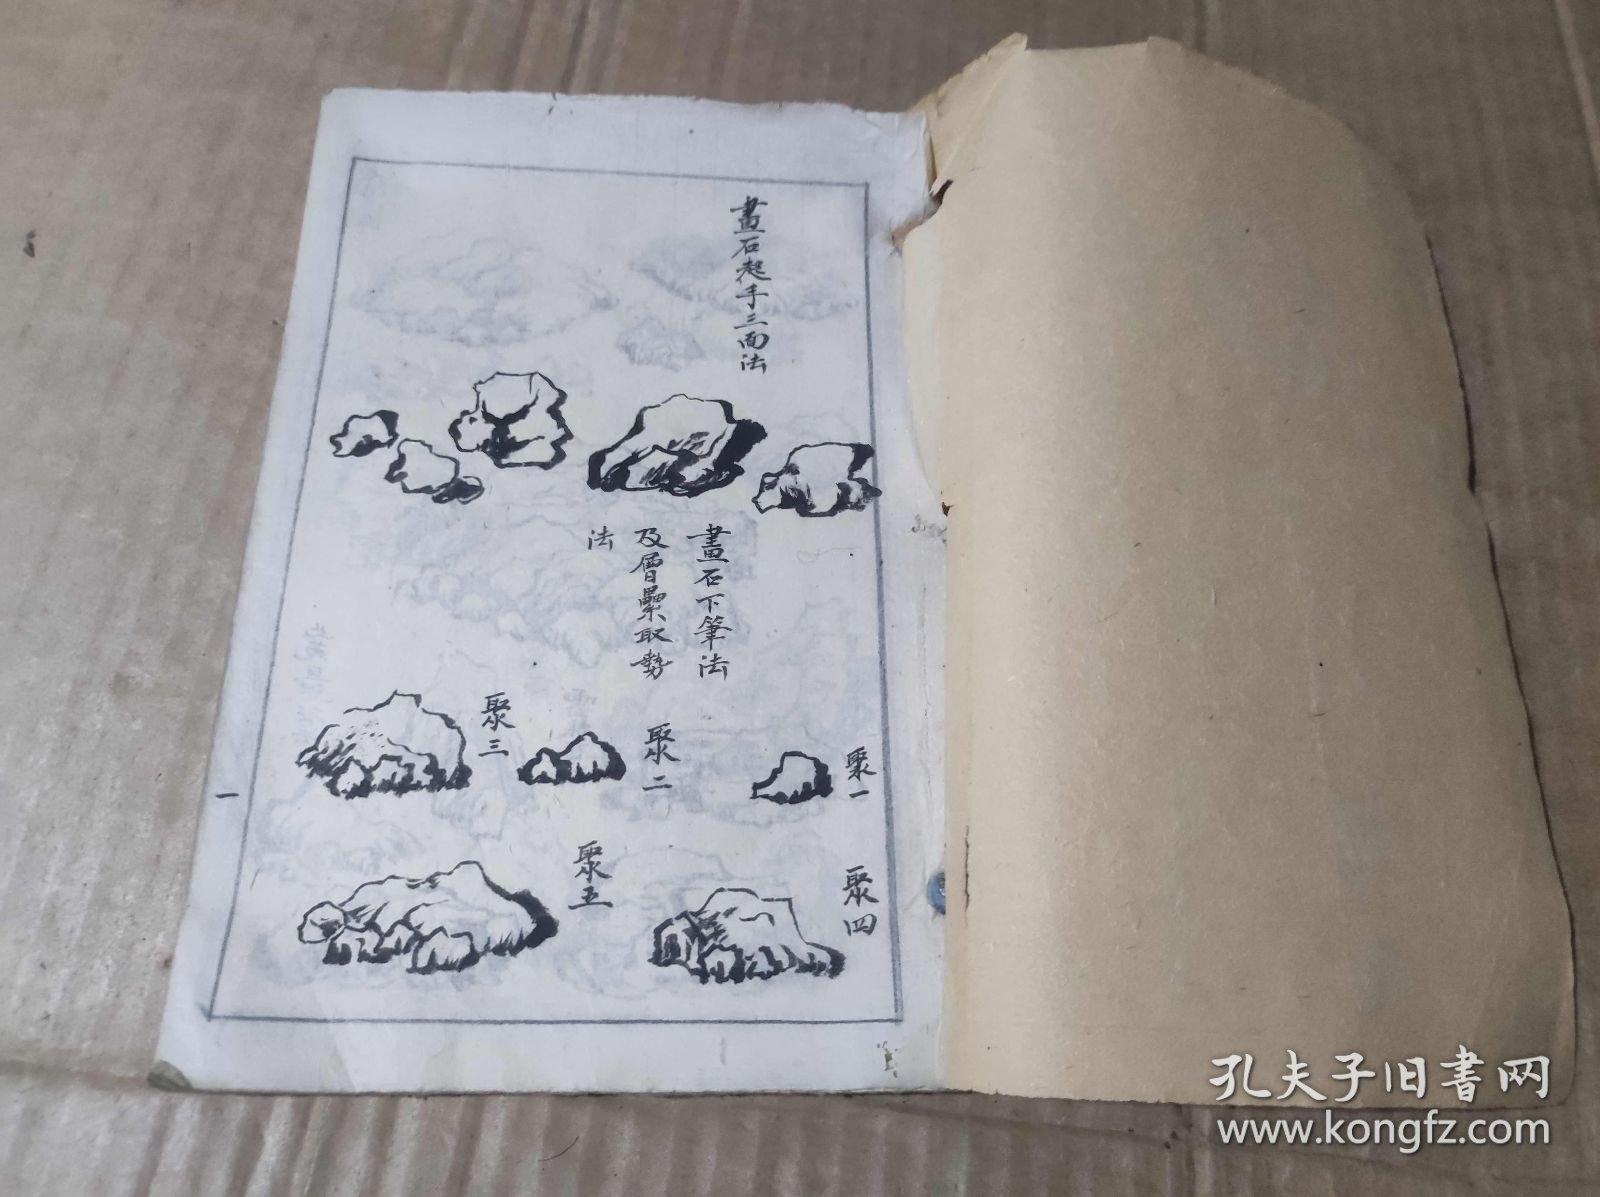 畫石起手三面法
畫石下筆法
及層纍取勢
法
聚一
聚二
聚三
聚四
聚五
一
孔夫子旧書网
www.kongfz.com